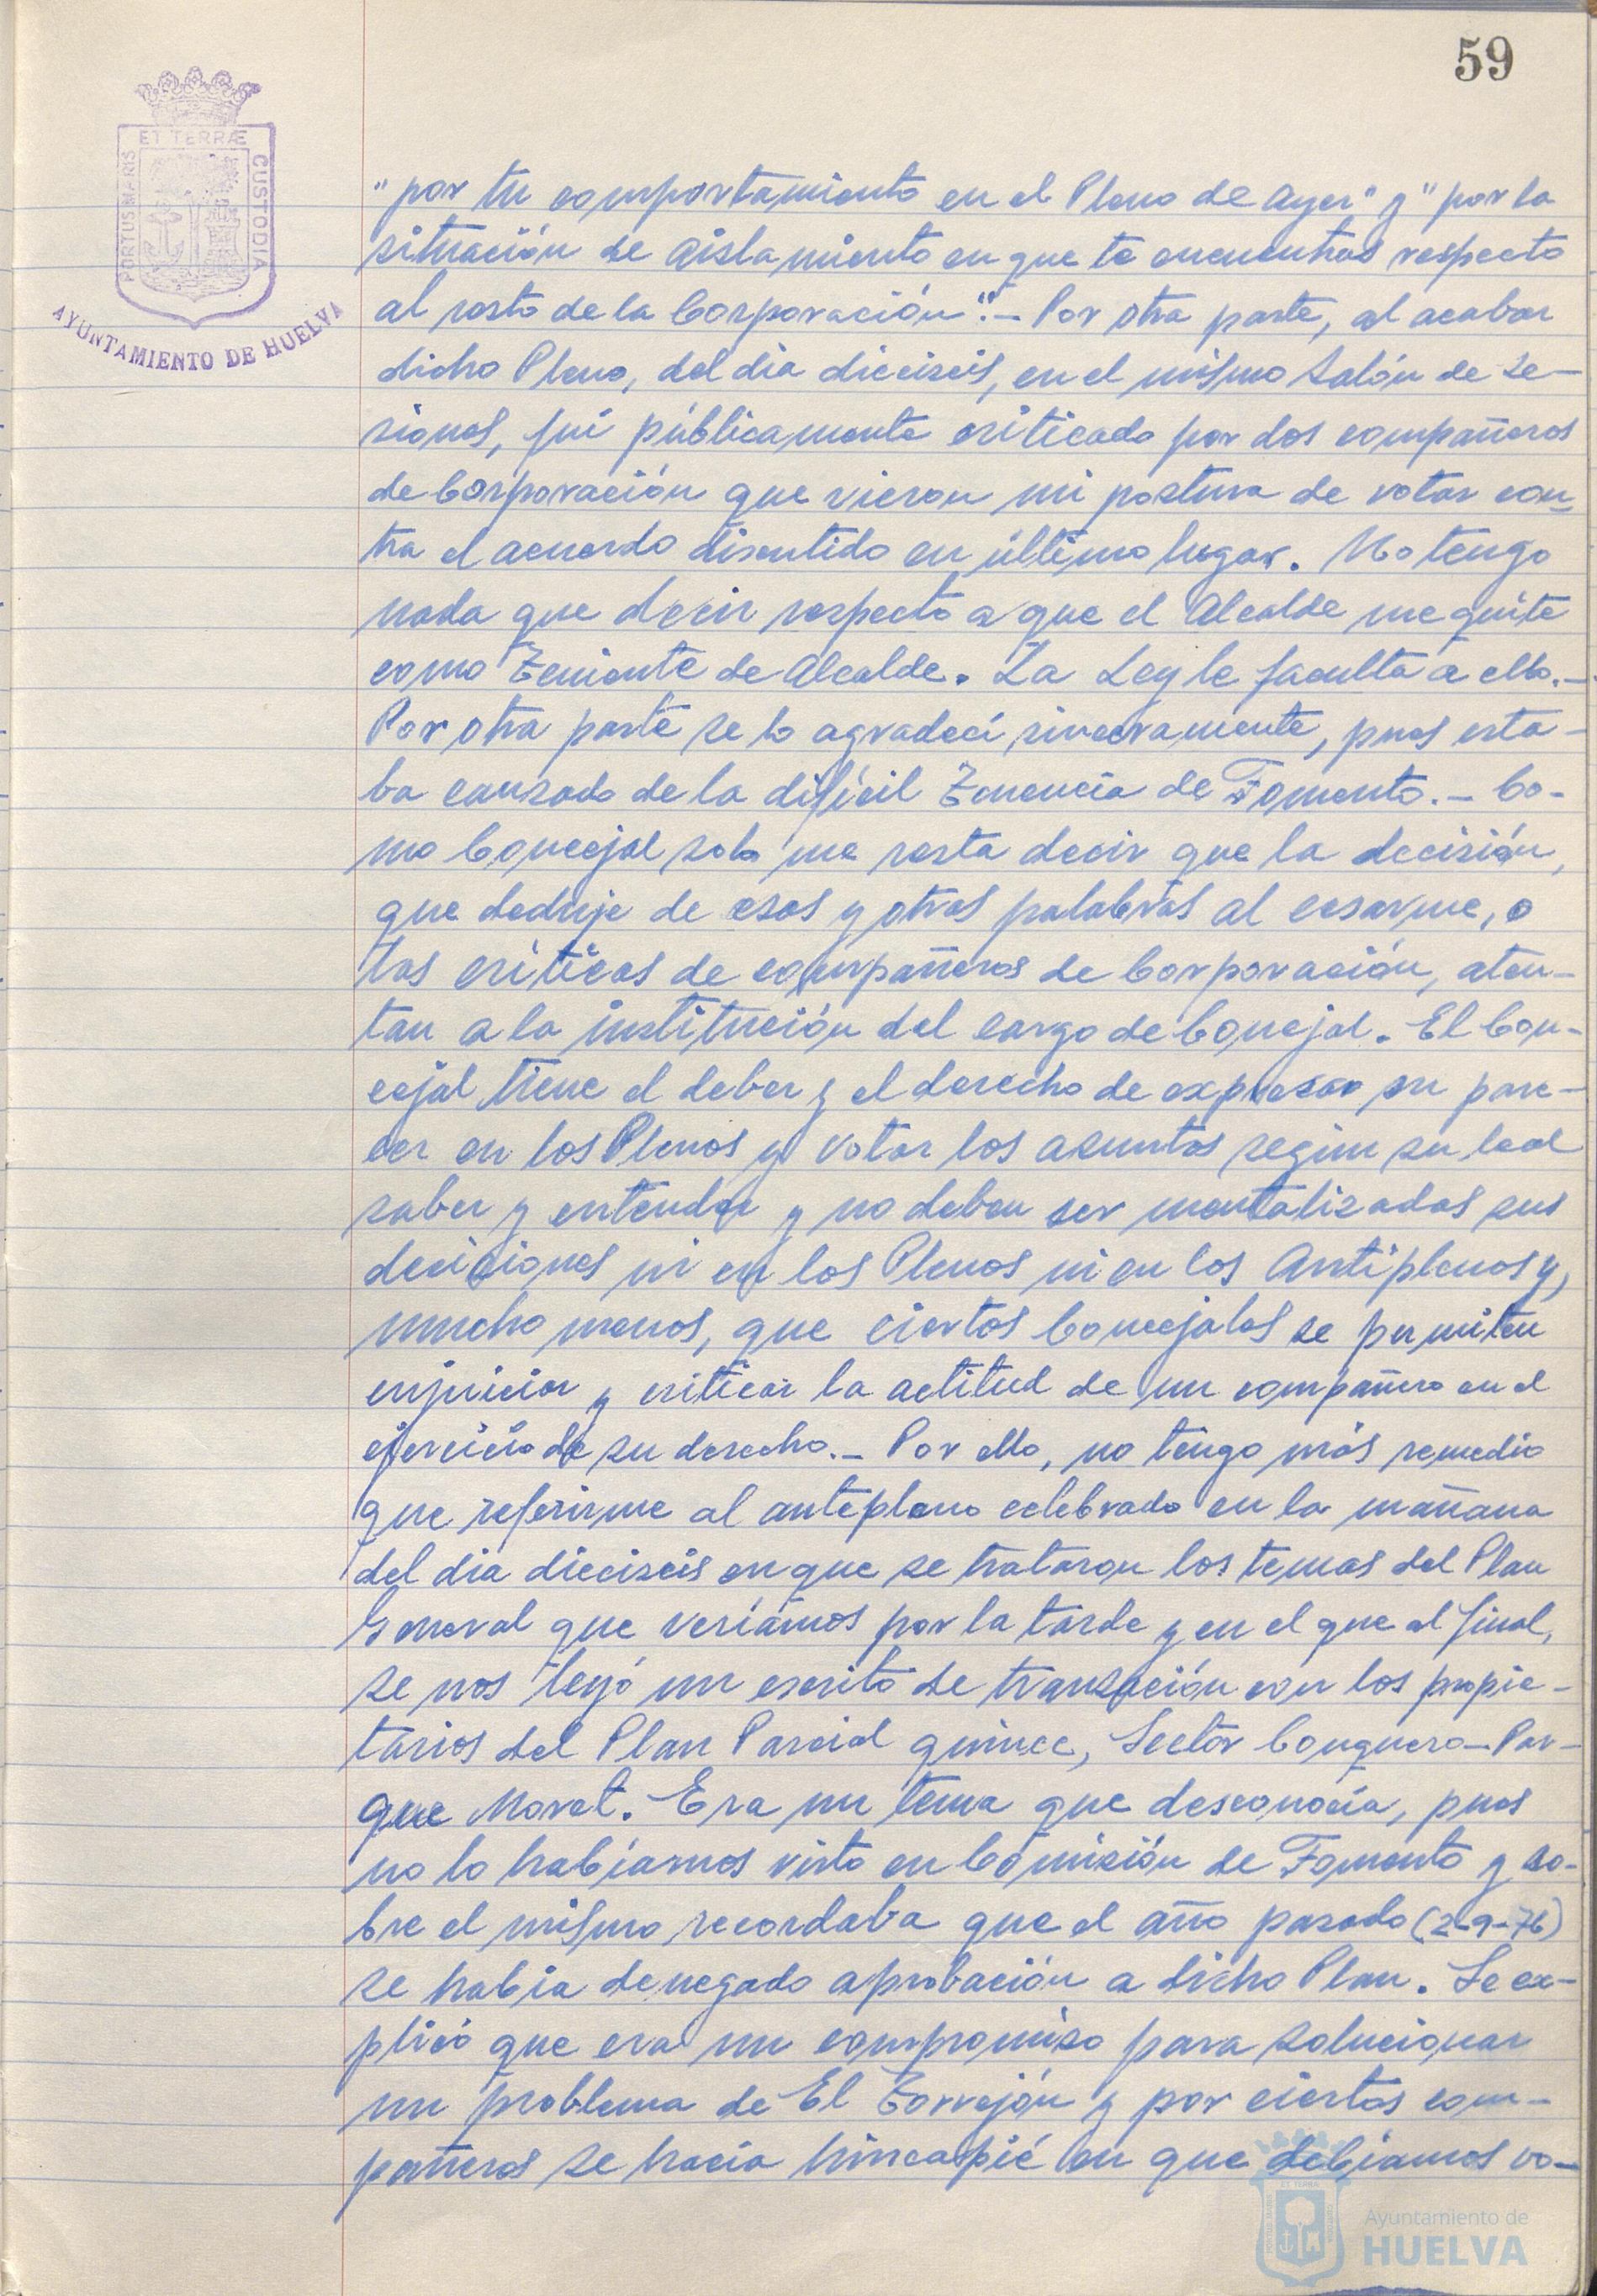 59
ET TERRÆ
PORTUS MARIS
CUSTODIA
AYUNTAMIENTO DE HUELVA
"por tu comportamiento en el Pleno de ayer" y "por la
situación de aislamiento en que te encuentras respecto
al resto de la Corporación".- Por otra parte, al acabar
dicho Pleno, del dia dieciseis, en el mismo Salón de se-
siones, fuí públicamente criticado por dos compañeros
de Corporación que vieron mi postura de votar con-
tra el acuerdo discutido en último lugar. No tengo
nada que decir respecto a que el Alcalde me quite
como Teniente de Alcalde. La Ley le faculta a ello.-
Por otra parte se lo agradecí sinceramente, pues esta-
ba cansado de la difícil Tenencia de Fomento.- Co-
mo Concejal solo me resta decir que la decisión,
que deduje de esas y otras palabras al cesarme, o
las críticas de compañeros de Corporación, aten-
tan a la institución del cargo de Concejal. El Con-
cejal tiene el deber y el derecho de expresar su pare-
cer en los Plenos y votar los asuntos segun su leal
saber y entender y no deben ser mentalizadas sus
decisiones ni en los Plenos ni en los Antiplenos y,
mucho menos, que ciertos Concejales se permiten
enjuiciar y criticar la actitud de un compañero en el
ejercicio de su derecho.- Por ello, no tengo más remedio
que referirme al antepleno celebrado en la mañana
del dia dieciseis en que se trataron los temas del Plan
General que veríamos por la tarde y en el que al final,
se nos leyó un escrito de transación con los propie-
tarios del Plan Parcial quince, Sector Conquero-Par-
que Moret. Era un tema que desconocía, pues
no lo habíamos visto en Comisión de Fomento y so-
bre el mismo recordaba que el año pasado (2-9-76)
se habia denegado aprobación a dicho Plan. Se ex-
plicó que era un compromiso para solucionar
un problema de El Torrejón y por ciertos com-
pañeros se hacía hincapié en que debiamos vo-
Ayuntamiento de
HUELVA